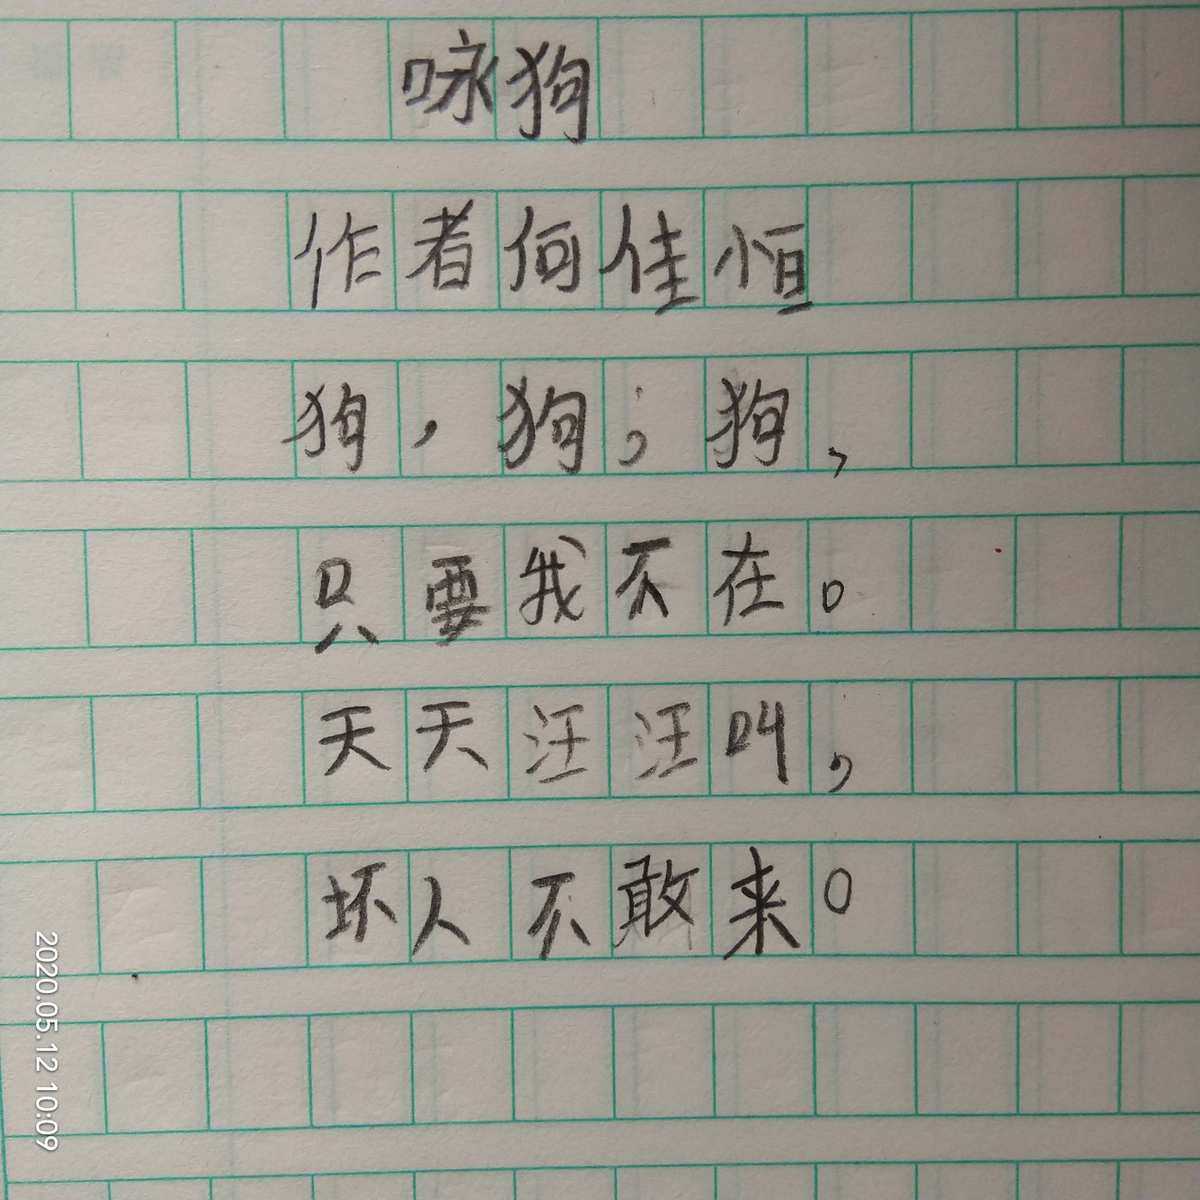 咏狗
作者何佳恒
狗，狗；狗，
只要我不在。
天天汪汪叫，
坏人不敢来。
2020.05.12 10:09